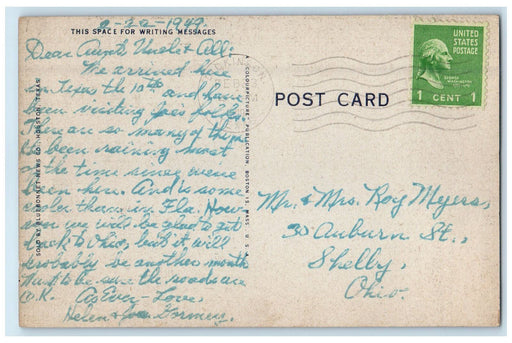 2-22-1949.
THIS SPACE FOR WRITING MESSAGES
Dear Aunt Uncle & All:
We arrived here
in Texas the 10th and have
been visiting Joe's folks.
There are so many of them
been raining most
of the time since we've
been here. And is some
colder than in Fla. How-
ever we will be glad to get
back to Ohio, but it will
probably be another month
to be sure the roads are
O.K. As Ever - Love,
Helen & Joe
SOLD BY BLUEBONNET NEWS CO., HOUSTON, TEXAS
A COLOURPICTURE PUBLICATION, BOSTON 15, MASS., U.S.A.
POST CARD
UNITED STATES
POSTAGE
GEORGE
WASHINGTON
1 CENT 1
Mr. & Mrs. Roy Meyers,
35 Auburn St.,
Shelby,
Ohio.